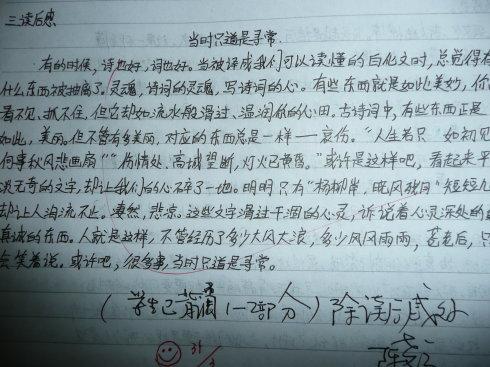 三、读后感
当时只道是寻常
有的时候，诗也好，词也好。当被译成我们可以读懂的白话文时，总觉得有
什么东西被抽离了。灵魂，诗词的灵魂，写诗词的心。有些东西就是如此美妙，你
看不见、抓不住，但它却如流水般滑过、温润你的心田。古诗词中，有些东西正是
如此，美丽。但不管有多美丽，对应的东西总是一样——哀伤。“人生若只如初见
何事秋风悲画扇”“伤情处，高城望断，灯火已黄昏。”或许是这样吧，看起来平
淡无奇的文字，却让我们的心碎了一地。明明只有“杨柳岸，晓风残月”短短几
却让人泪流不止。凄然，悲凉。这些文字滑过干涸的心灵，诉说着人心灵深处的
真诚的东西。人就是这样，不管经历了多少大风大浪，多少风风雨雨，老后，只
会笑着说。或许吧，很多事，当时只道是寻常。
（学生已背 1—2部分）除读后感外
31/3